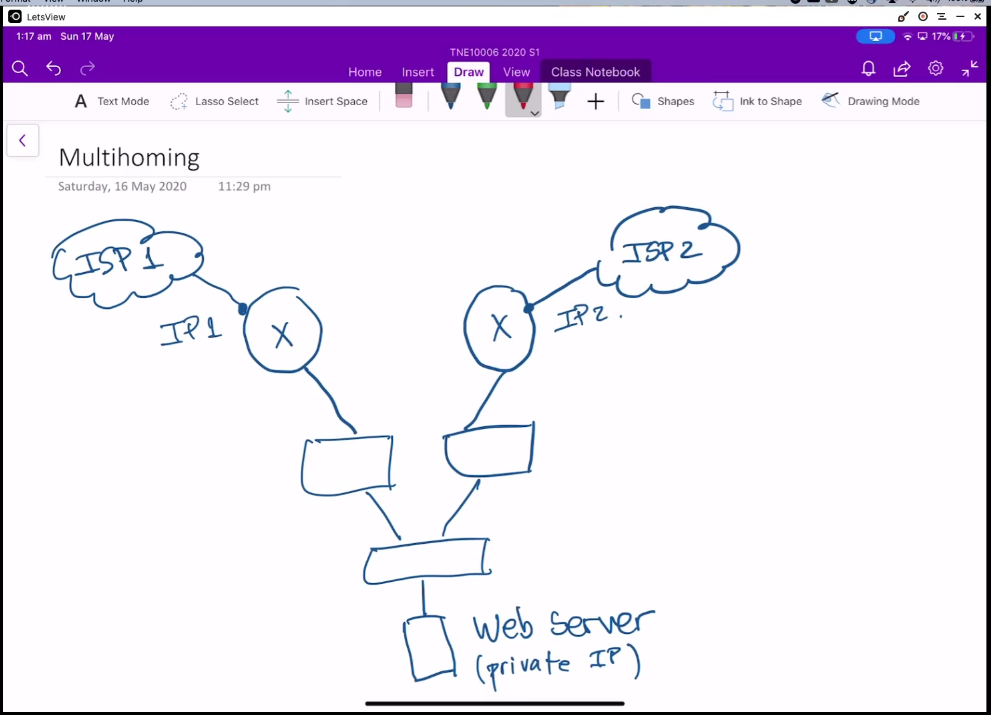 LetsView
1:17 am Sun 17 May
17%
TNE10006 2020 S1
Home Insert Draw View Class Notebook
A Text Mode Lasso Select Insert Space Shapes Ink to Shape Drawing Mode
Multihoming
Saturday, 16 May 2020 11:29 pm
ISP 1
ISP 2
IP1
X
X
IP2.
Web Server
(private IP)